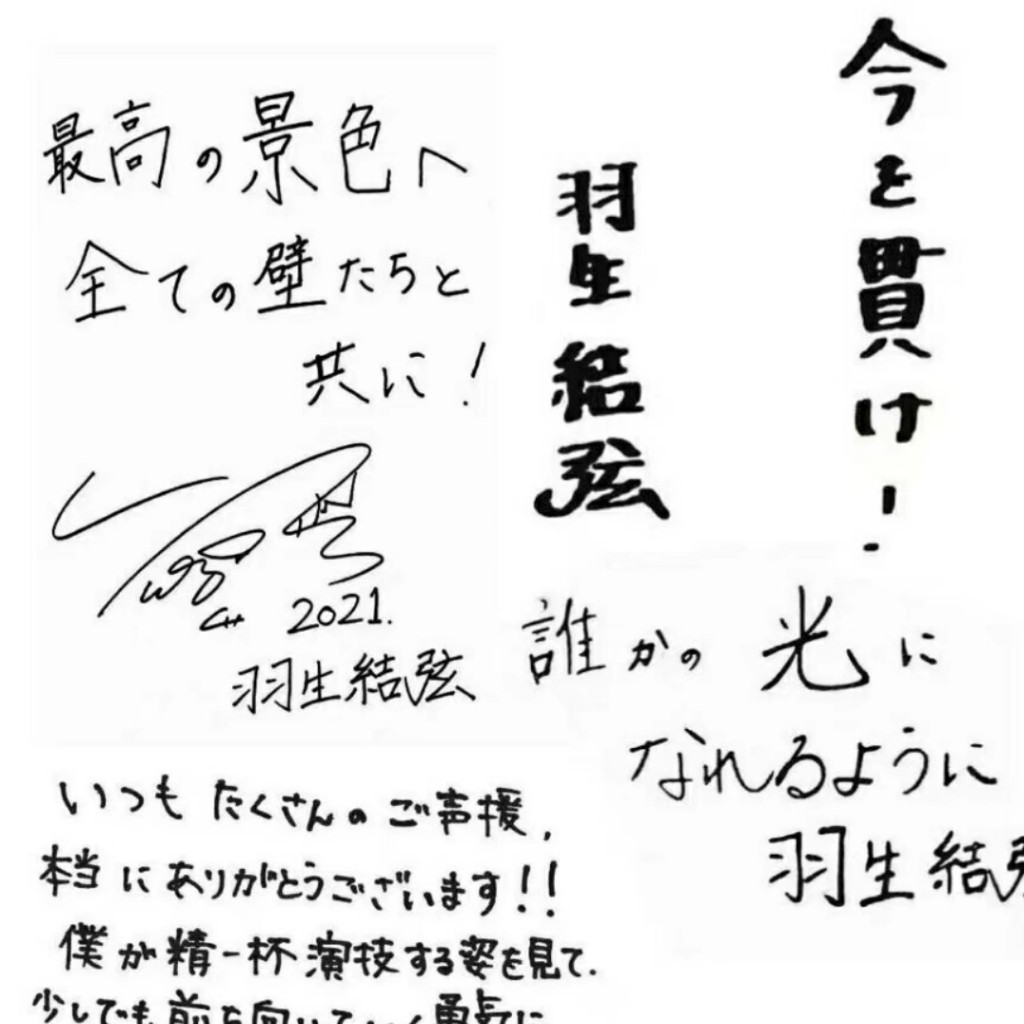 最高の景色へ
全ての壁たちと
共に!
2021.
羽生結弦
今を貫け!
羽生結弦
誰かの光に
なれるように
羽生結弦
いつもたくさんのご声援、
本当にありがとうございます!!
僕が精一杯演技する姿を見て、
少しでも前を向いていく勇気に